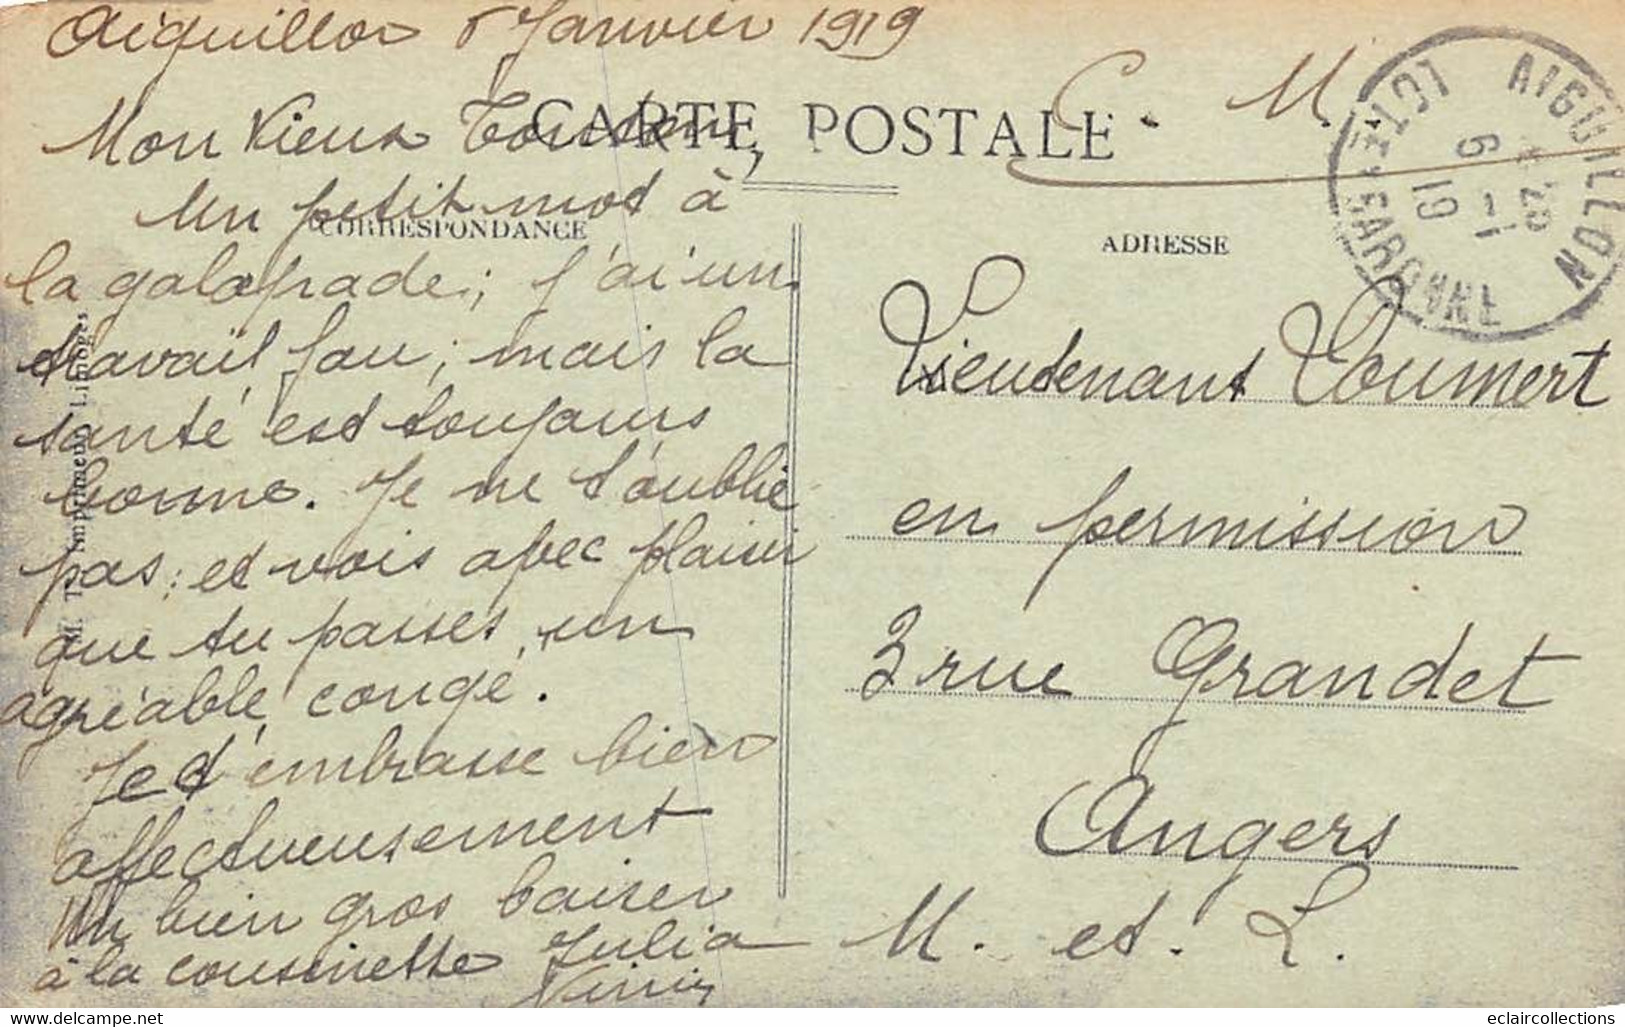 Aiguillon 6 Janvier 1919
C. M.
CARTE POSTALE
Mon Vieux
Un petit mot à
CORRESPONDANCE
la galopade; j'ai un
travail fou; mais la
santé est toujours
bonne. Je ne t'oublie
pas; et vois avec plaisir
que tu passes un
agréable congé.
Je t'embrasse bien
affectueusement
Un bien gros baiser
à la cousinette Julia
M. T. Imprimeur Limoges
ADRESSE
Lieutenant Toumert
en permission
3 rue Grandet
Angers
M. et L.
AIGUILLON
LOT-ET-GARONNE
6 -1
19
eclaircollections
www.delcampe.net